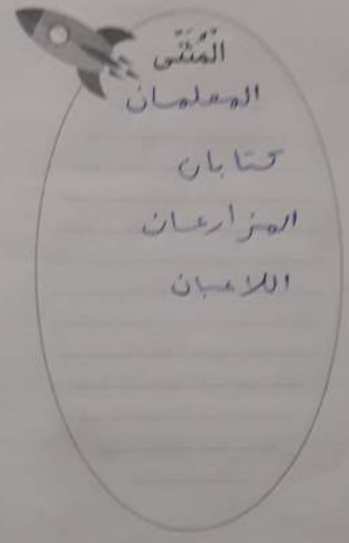 الْمُثَنَّى
المعلمان
كتابان
المزارعان
اللاعبان